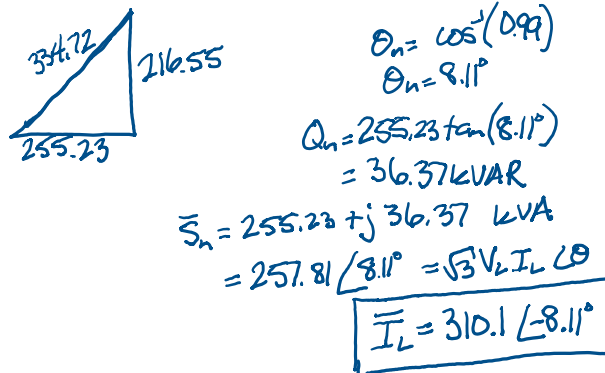 334.72
216.55
255.23
θn = cos⁻¹(0.99)
θn = 8.11°
Qn = 255.23 tan(8.11°)
= 36.37 kVAR
S̄n = 255.23 + j 36.37 kVA
= 257.81 ∠8.11° = √3 VL IL ∠θ
ĪL = 310.1 ∠-8.11°